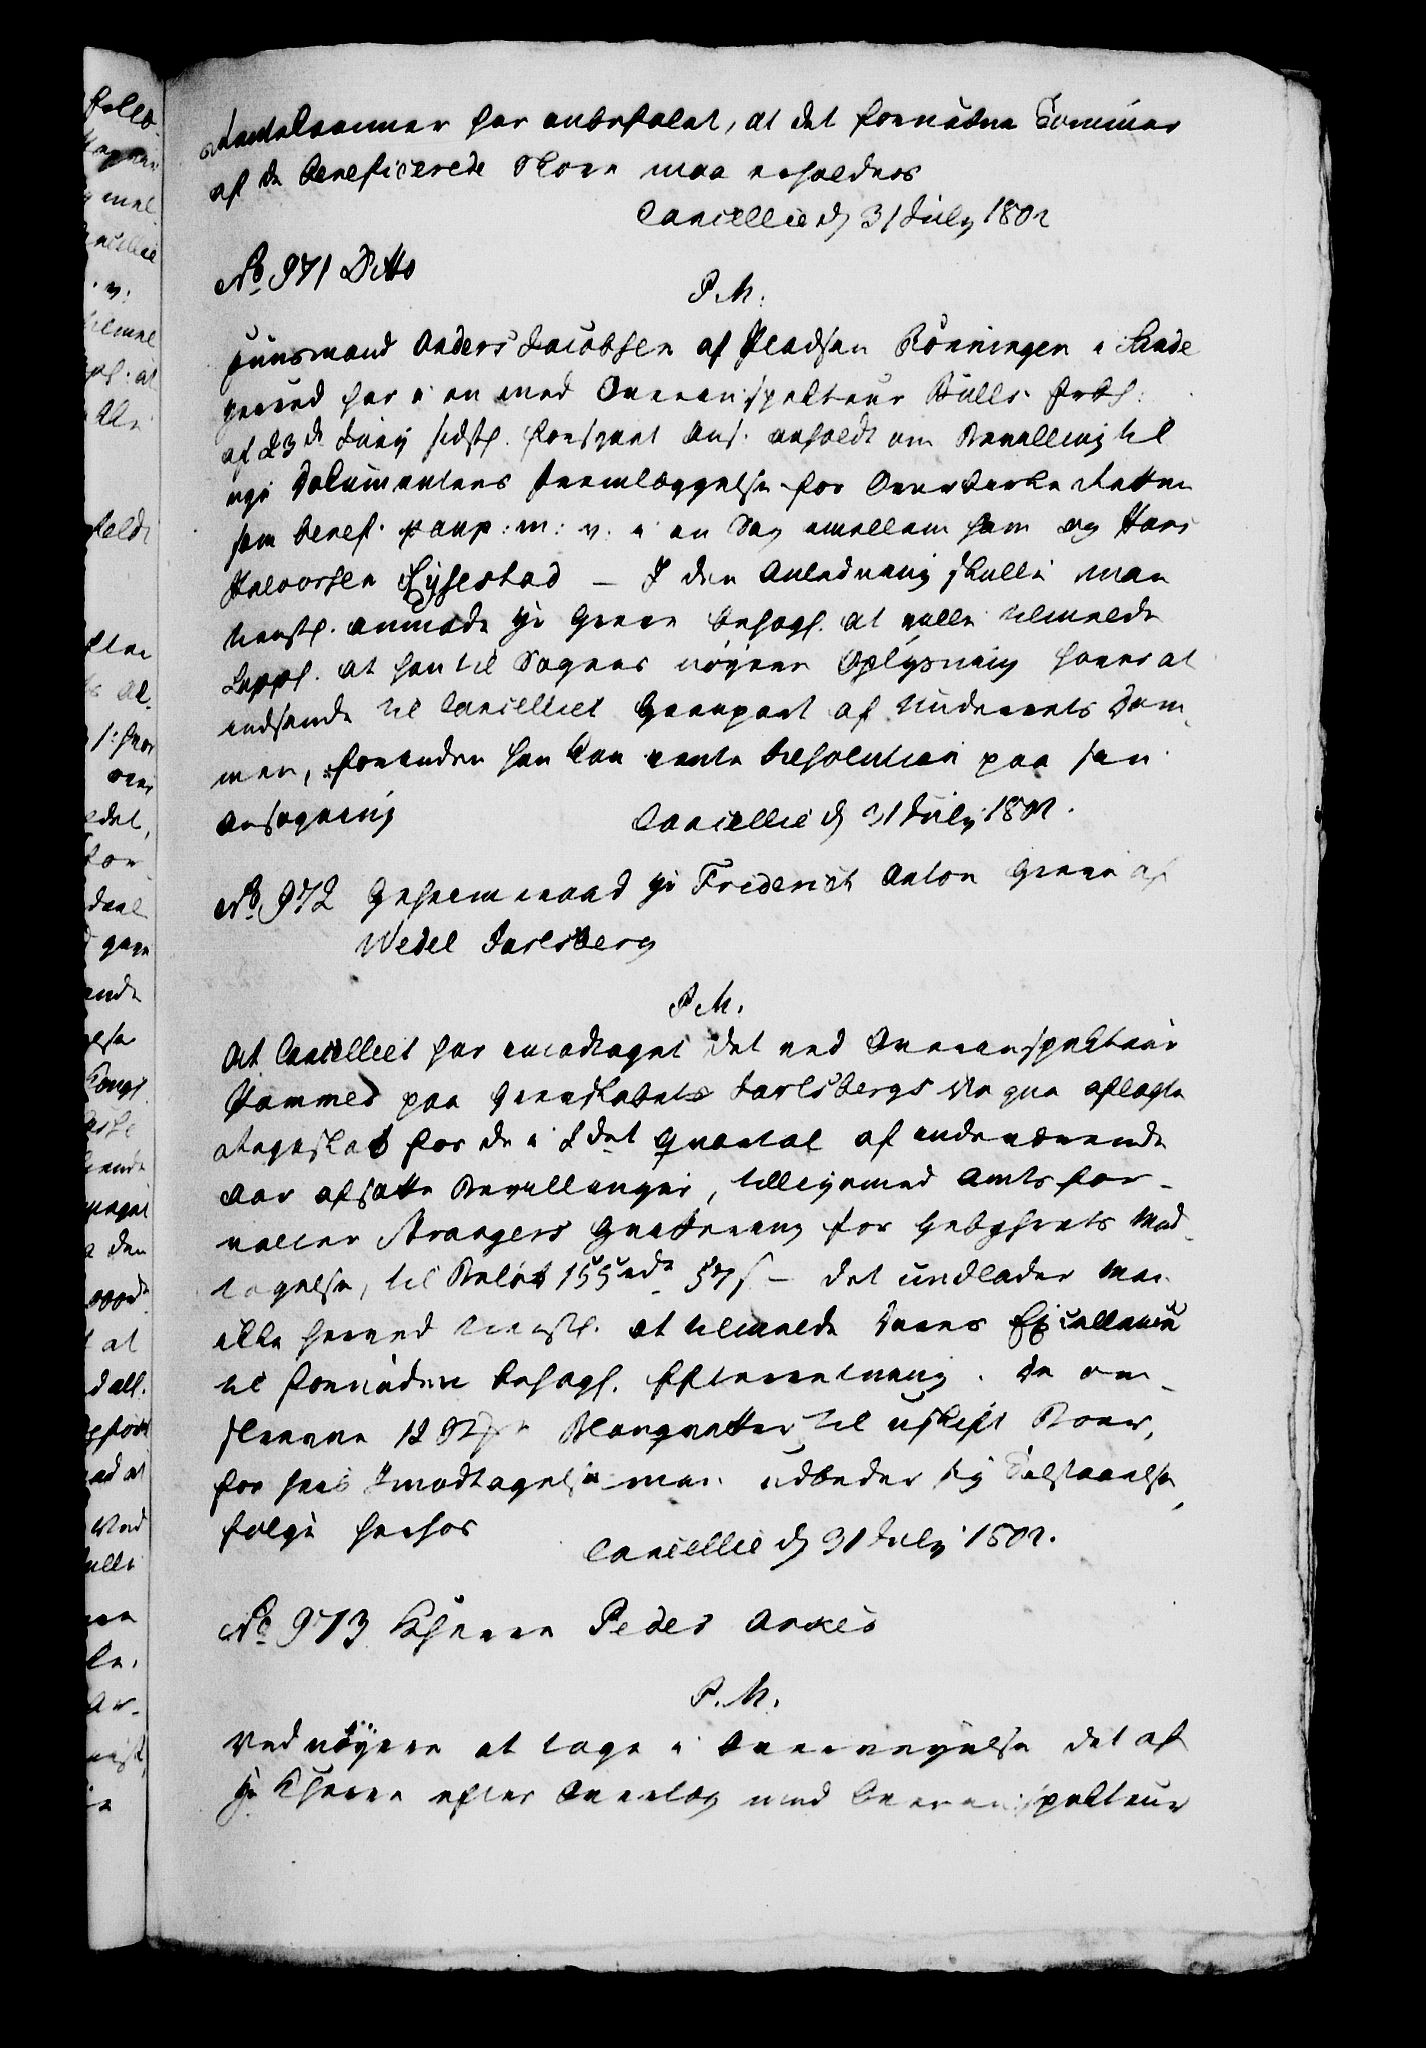 Rentekammer har anbefalet, at det fornødne Tømmer
af de beneficerede Skove maa erholdes
Cancelliet d 31 July 1802
No 971 Ditto
P. M.
Huusmand Anders Jacobsen af Pladsen Rönningen i Sande
gield har i en med Overinspekteur Bulls Erkl:
af 23de Juny sidstl. forsynet Ans. anholdt om Bevilling til
nye Documenters Fremlæggelse for Overhofretten
som benef. paup: m: v: i en Sag imellem ham og Hans
Halvorsen Lysestad — I den Anledning skulle man
tienstl. anmode Hr Greve behagl. at ville tilmelde
Suppl. at han til Sagens nøyere Oplysning haver at
indsende til Cancelliet Gienpart af Underrets Dom-
men, forinden han kan vente Resolution paa sin
Ansøgning
Cancelliet d 31 July 1802.
No 972 Geheimeraad Hr Friderich Anton Greve af
Wedel Jarlsberg
P. M.
At Cancelliet har imodtaget det ved Overinspekteur
Hammer paa Grevskabets Jarlsbergs Vegne aflagte
Regnskab for de i 2det Quartal af indeværende
Aar afsatte Bevillinger, tilligemed Amtsfor-
valter Stranges Qvittering for Gebyhrets Mod-
tagelse, til Beløb 155 rdr 57 s — det undlader man
ikke herved tienstl. at tilmelde Deres Excellence
til fornøden behagl. Efterretning. De om-
skrevne 12 Blanqvetter til uskift Boer,
for hvis Imodtagelse man udbeder sig Tilstaaelse,
følge herhos
Cancelliet d 31 July 1802.
No 973 Hr Peder Anker
P. M.
Ved nøyere at tage i Overveyelse det af
Hr efter Overlæg med Overinspekteur